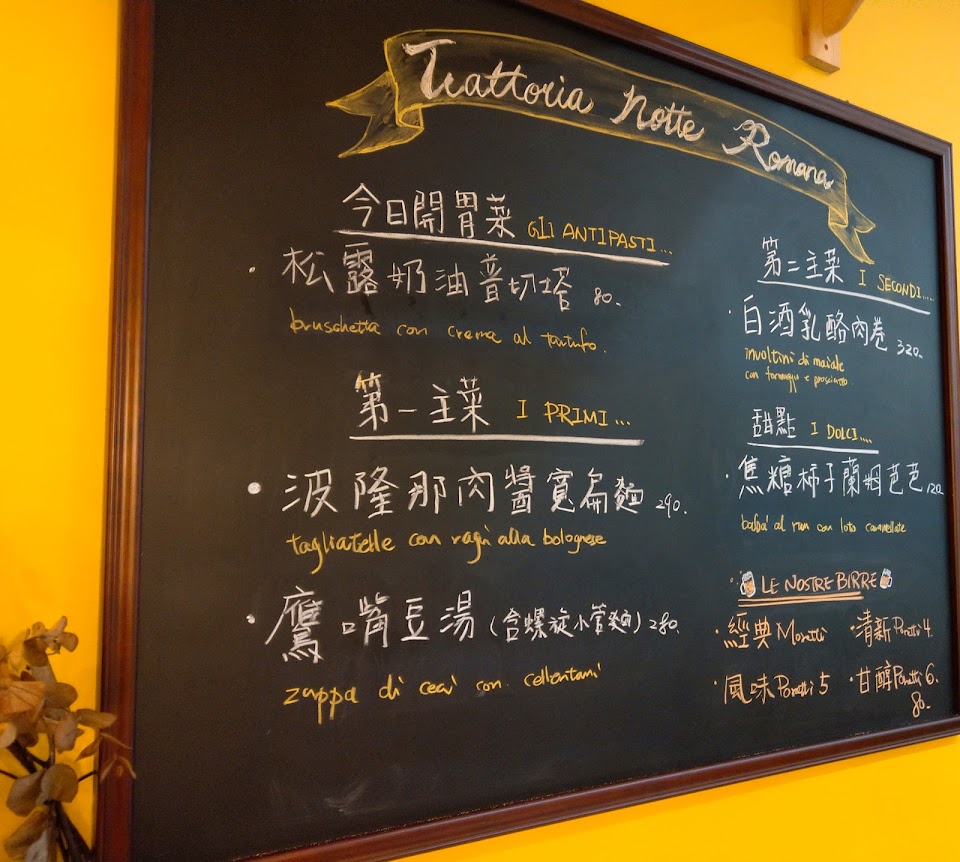 Trattoria Notte Romana
今日開胃菜 GLI ANTIPASTI...
· 松露奶油普切塔 80.
bruschetta con crema al tartufo.
第一主菜 I PRIMI...
· 波隆那肉醬寬扁麵 290.
tagliatelle con ragù alla bolognese
· 鷹嘴豆湯(含螺旋小管麵) 280.
zuppa di ceci con cellentani
第二主菜 I SECONDI....
· 白酒乳酪肉卷 320.
involtini di maiale
con formaggio e prosciutto.
甜點 I DOLCI....
· 焦糖柿子蘭姆芭芭 120.
al rum con loto caramellate
LE NOSTRE BIRRE
· 經典 Moretti · 清新 Poretti 4.
· 風味 Poretti 5 · 甘醇 Poretti 6.
80.